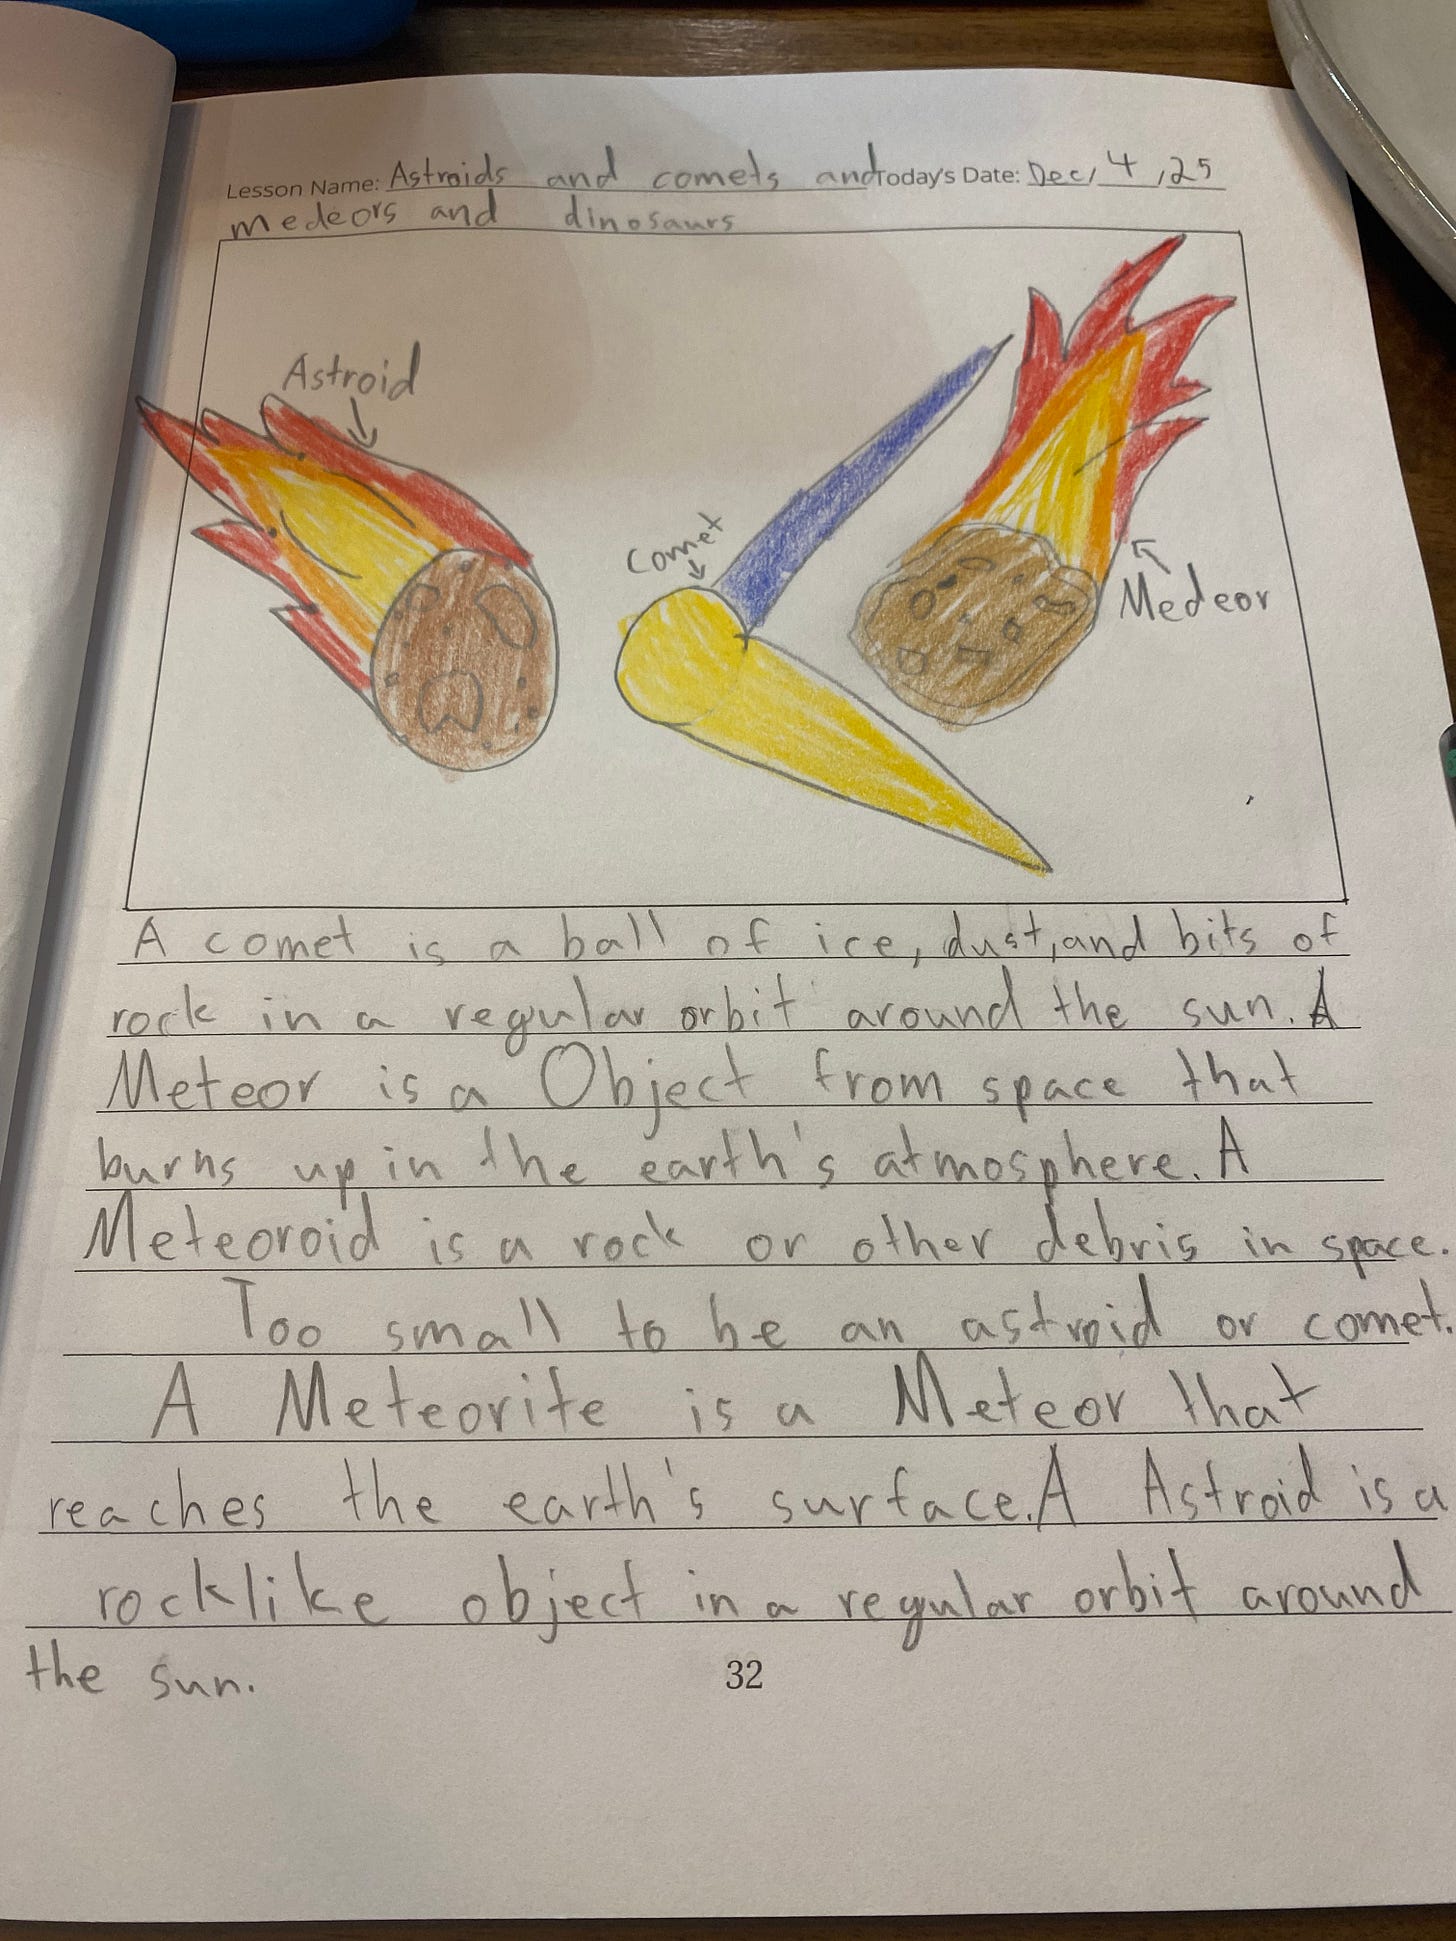 Lesson Name: Astroids and comets and Today's Date: Dec, 4, 25
medeors and dinosaurs
Astroid
Comet
Medeor
A comet is a ball of ice, dust, and bits of
rock in a regular orbit around the sun. A
Meteor is a Object from space that
burns up in the earth's atmosphere. A
Meteoroid is a rock or other debris in space.
Too small to be an astroid or comet.
A Meteorite is a Meteor that
reaches the earth's surface. A Astroid is a
rocklike object in a regular orbit around
the sun.
32